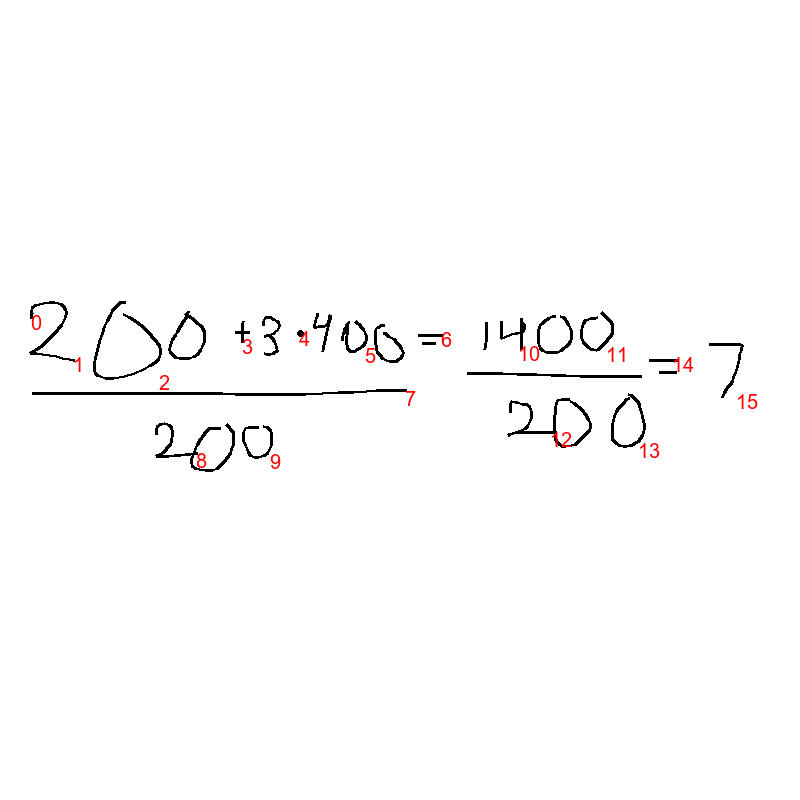 \frac{200+3\cdot400}{200}=\frac{1400}{200}=7
0 1 2 3 4 5 6 7 8 9 10 11 12 13 14 15